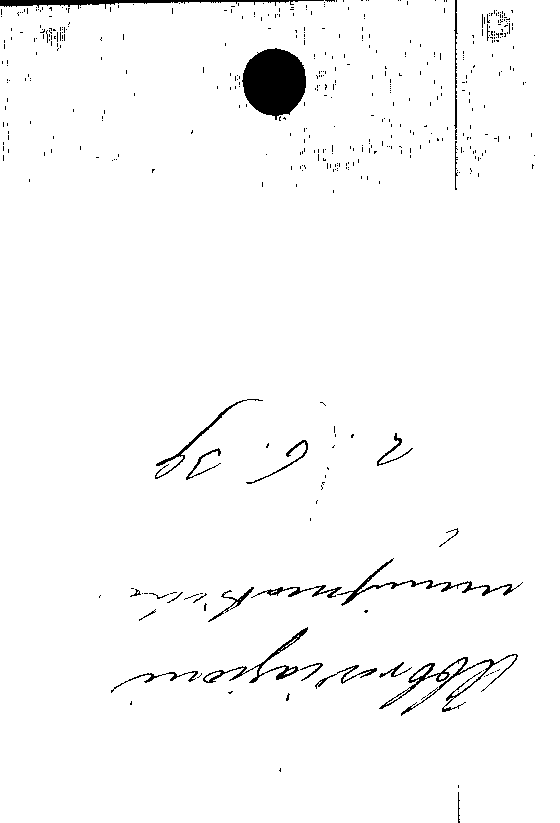 Abbreviazioni
numismatiche
2. 6. 39